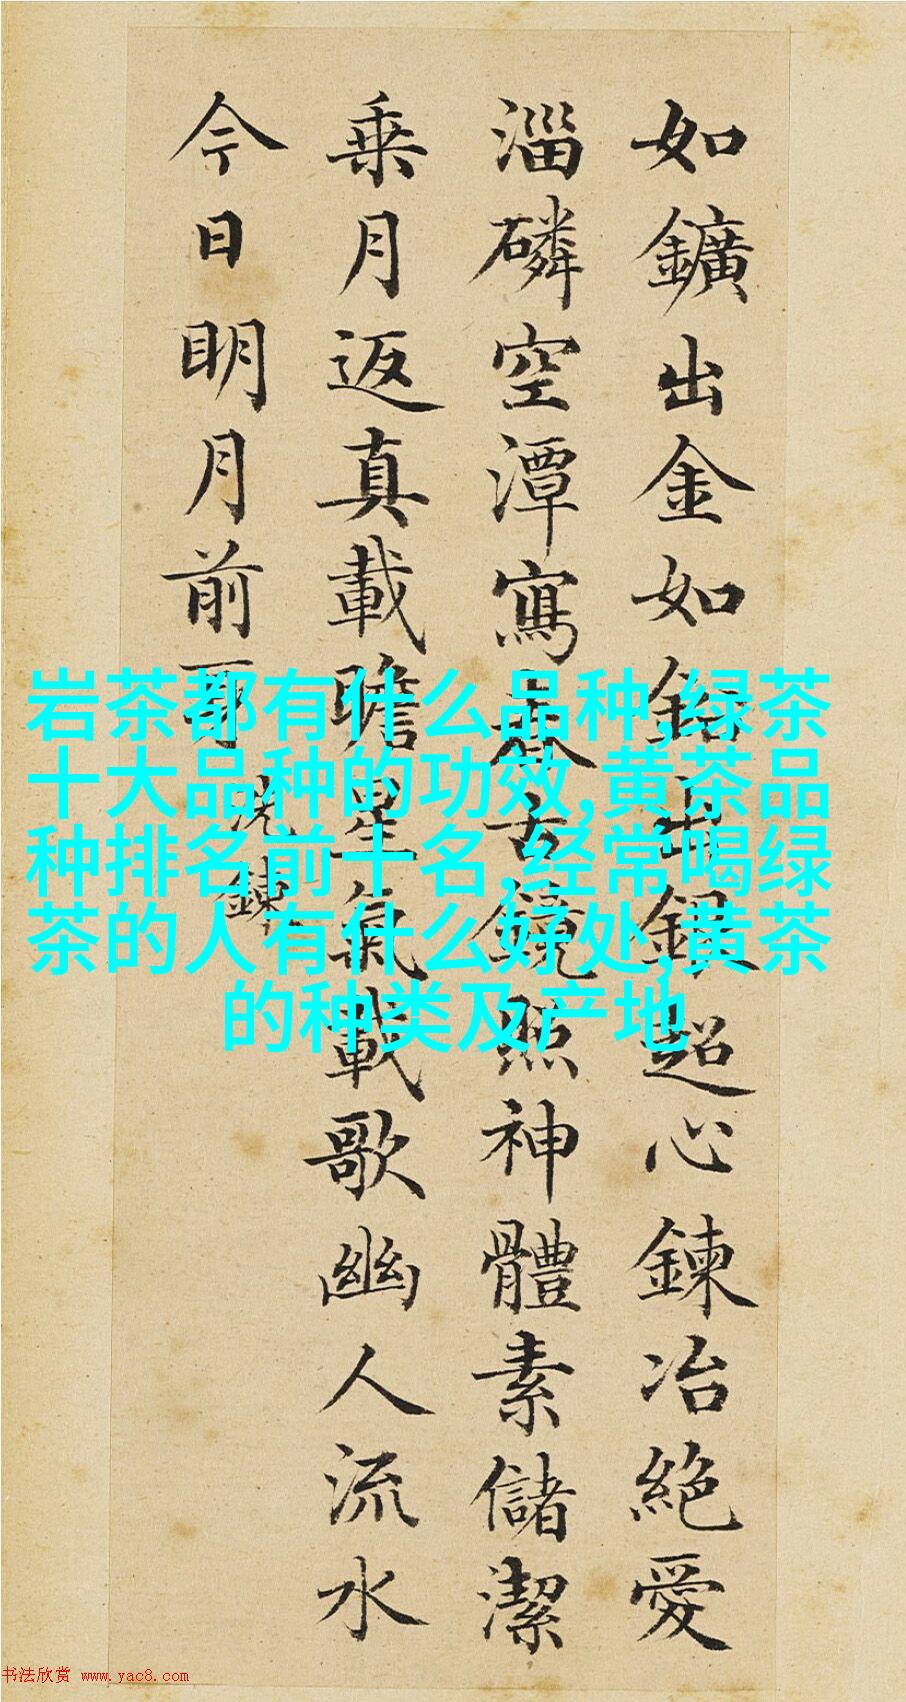 如鑛出金如鉛出銀超心鍊冶絕愛
淄磷空潭寫春古鏡照神體素儲潔
乘月返真載瞻星氣載歌幽人流水
今日明月前身
洗鍊
岩茶都有什么品种,绿茶
十大品种的功效,黄茶品
种排名前十名,经常喝绿
茶的人有什么好处,黄茶
的种类及产地
书法欣赏 www.yac8.com